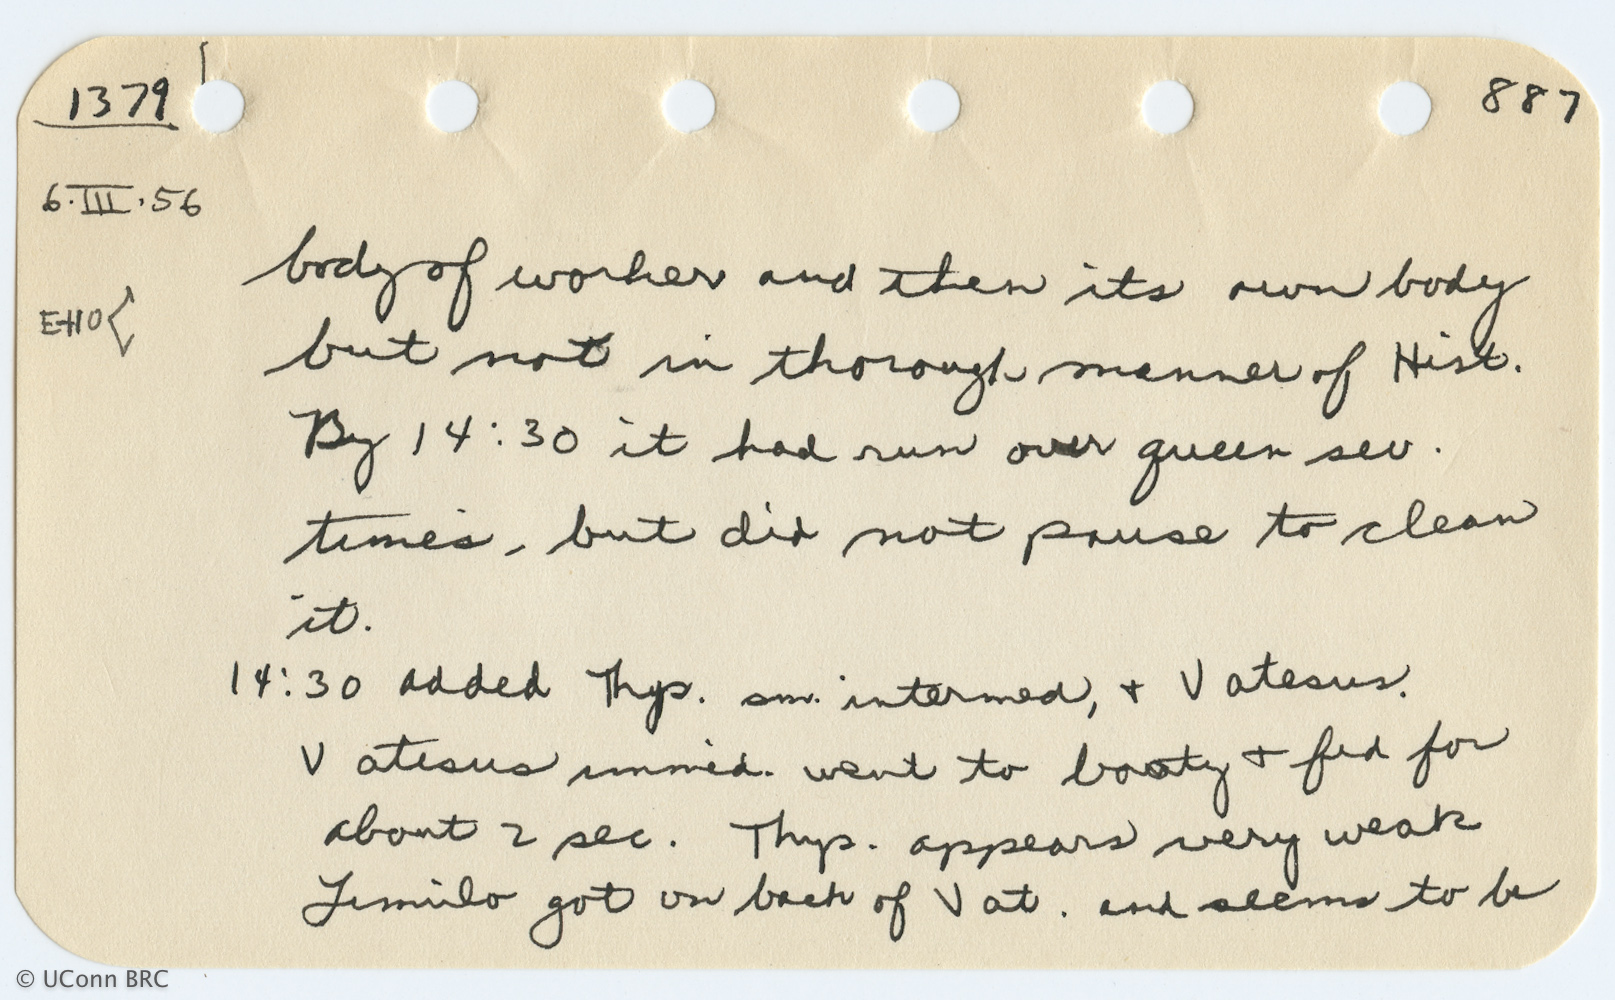 1379
887
6·III·56
E-110<
body of worker and then its own body
but not in thorough manner of Hist.
By 14:30 it had run over queen sev.
times, but did not pause to clean
it.
14:30 added Thys. sm. intermed, + Vatesus.
Vatesus immed. went to booty + fed for
about 2 sec. Thys. appears very weak
Limulo got on back of Vat. and seems to be
© UConn BRC